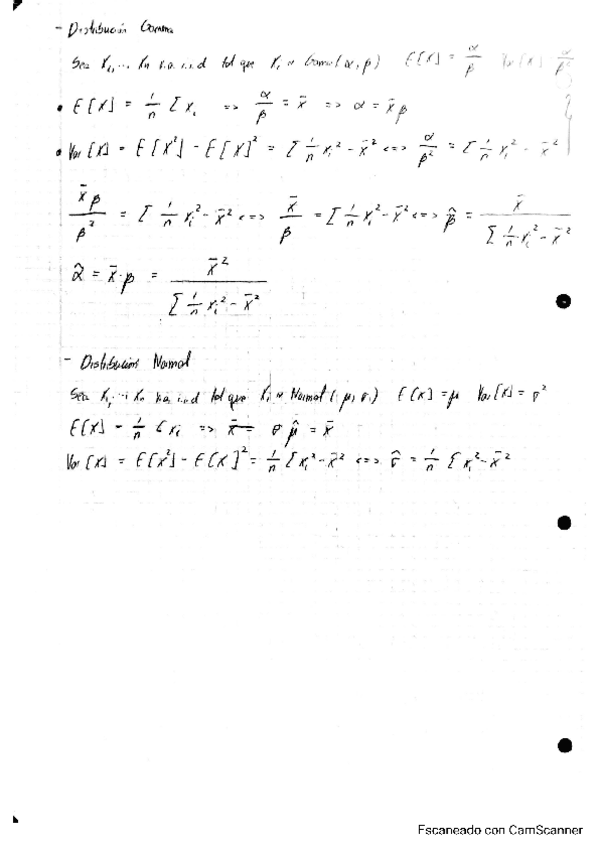 - Distribución Gamma
Sea X₁, ... Xn v.a i.i.d tal que Xi ~ Gama(α, β) E[X] = α/β Var[X] = α/β²
• E[X] = 1/n Σ xi => α/β = x̄ => α = x̄ β
• Var[X] = E[X²] - E[X]² = Σ 1/n xi² - x̄² <=> α/β² = Σ 1/n xi - x̄²
x̄ β/β² = Σ 1/n xi² - x̄² <=> x̄/β = Σ 1/n xi² - x̄² <=> β̂ = x̄/(Σ 1/n xi² - x̄²)
α̂ = x̄ · β = x̄²/(Σ 1/n xi² - x̄²)
- Distribución Normal
Sea X₁, ... Xn v.a i.i.d tal que Xi ~ Normal(μ, σ) E[X] = μ Var[X] = σ²
E[X] = 1/n Σ xi => μ̂ = x̄
Var[X] = E[X²] - E[X]² = 1/n Σ xi² - x̄² <=> σ̂ = 1/n Σ xi² - x̄²
Escaneado con CamScanner